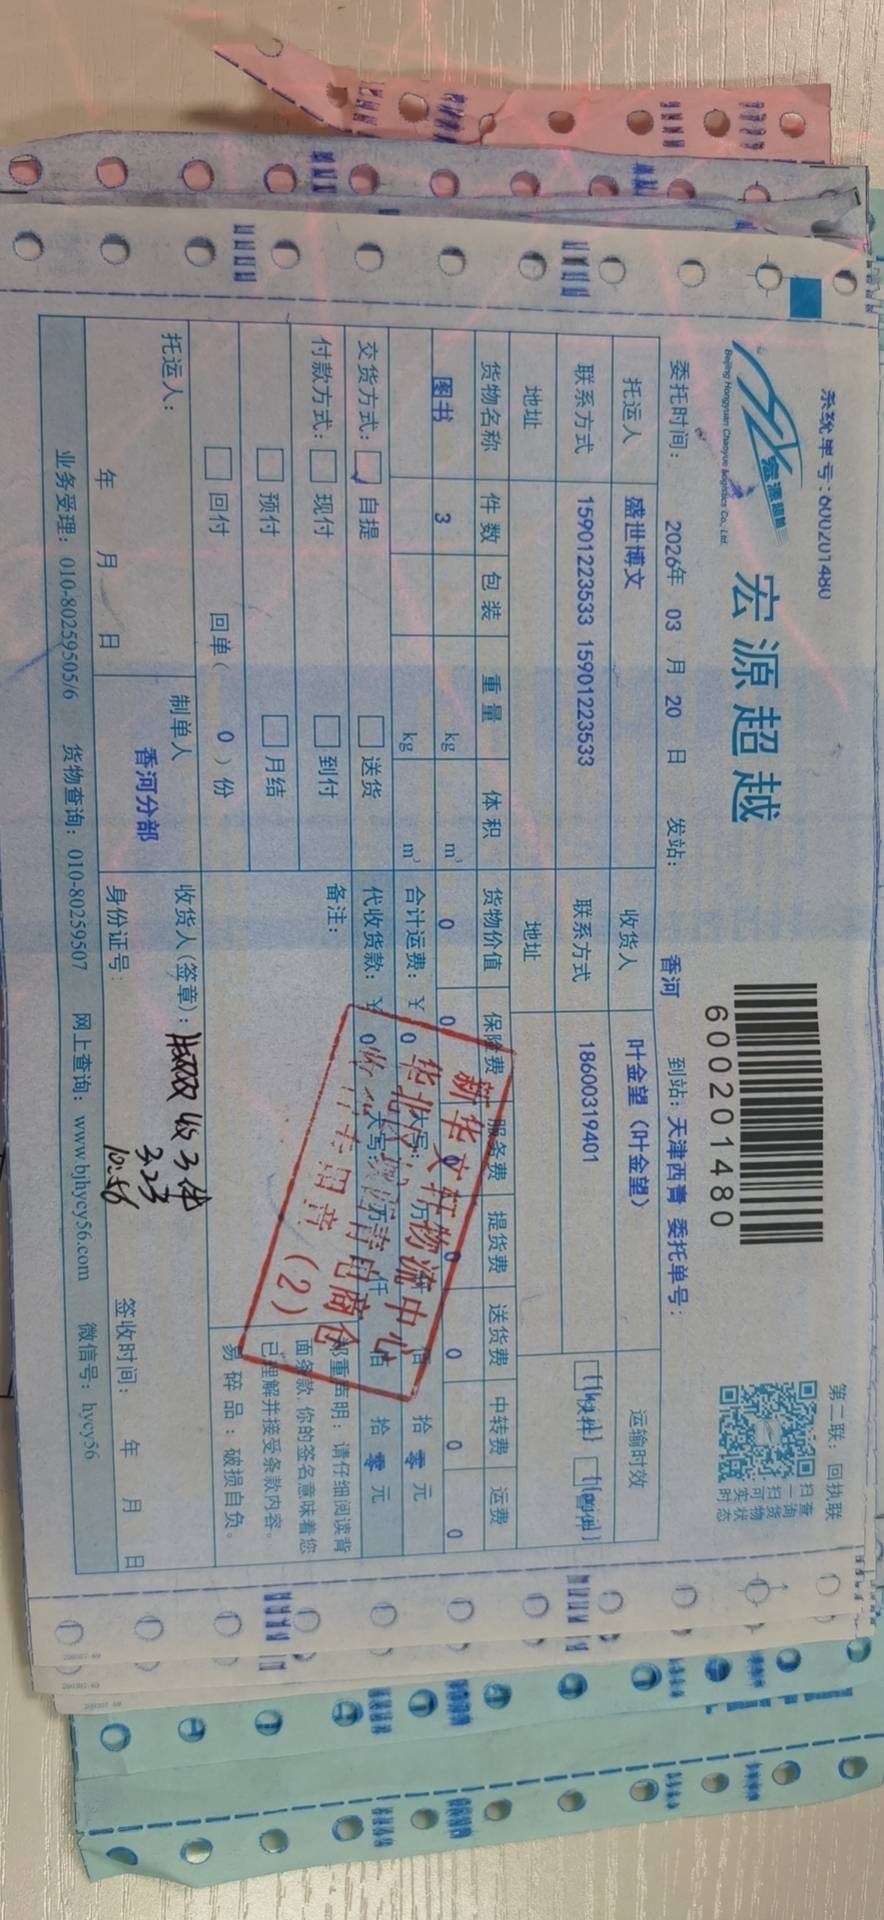 系统单号：600201480
第二联：回执联
宏源超越
Beijing Hongyuan Chaoyue Logistics Co., Ltd.
宏源超越
600201480
扫一扫可实时
查询货物状态
委托时间： 2026年 03 月 20 日 发站： 香河 到站：天津西青 委托单号：
托运人 盛世博文 收货人 叶金望（叶金望） 运输时效
联系方式 15901223533 15901223533 联系方式 18600319401
地址 地址
货物名称 件数 包装 重量 体积 货物价值 保险费 服务费 提货费 送货费 中转费 运费
图书 3 kg m³ 0 0 0 0 0 0 0
kg m³ 合计运费：￥ 0 大写： 万 仟 佰 拾 零 元
交货方式： 自提 送货 代收货款：￥ 0 大写： 万 仟 佰 拾 零 元
付款方式： 现付 到付 备注：
预付 月结
回付 回单（ 0 ）份
郑重声明：请仔细阅读背
面条款，你的签名意味着您
已理解并接受条款内容。
易碎品：破损自负。
新华文轩物流中心
华北
青电商仓
专用章（2）
托运人： 制单人 收货人（签章）： 收3件
香河分部 3.23
年 月 日 身份证号： 10:56 签收时间： 年 月 日
业务受理：010-80259505/6 货物查询：010-80259507 网上查询：www.bjhycy56.com 微信号：hycy56